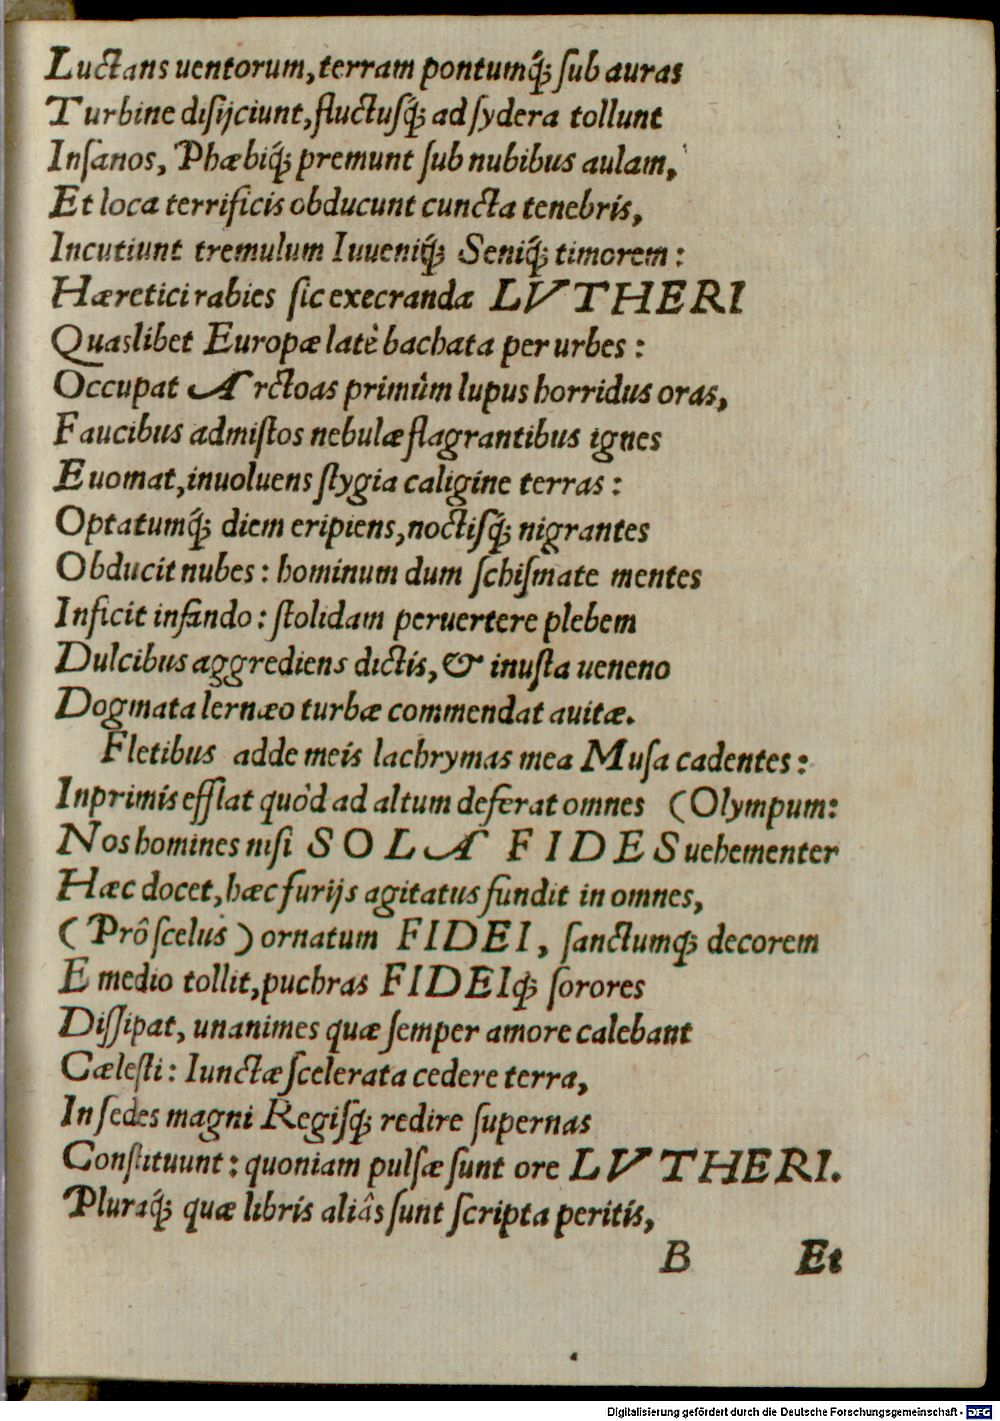 Luctans uentorum, terram pontumq́; ſub auras
Turbine diſijciunt, fluctuſq́; ad ſydera tollunt
Inſanos, Phæbiq́; premunt ſub nubibus aulam,
Et loca terrificis obducunt cuncta tenebris,
Incutiunt tremulum Iuueniq́; Seniq́; timorem:
Hæretici rabies ſic execranda LVTHERI
Quaslibet Europæ latè bachata per urbes:
Occupat Arctoas primûm lupus horridus oras,
Faucibus admiſtos nebulæ flagrantibus ignes
Euomat, inuoluens ſtygia caligine terras:
Optatumq́; diem eripiens, noctiſq́; nigrantes
Obducit nubes: hominum dum ſchiſmate mentes
Inficit infando: ſtolidam peruertere plebem
Dulcibus aggrediens dictis, & inuſta ueneno
Dogmata lernæo turbæ commendat auitæ.
Fletibus adde meis lachrymas mea Muſa cadentes:
Inprimis efflat quòd ad altum deferat omnes (Olympum:
Nos homines niſi SOLA FIDES uehementer
Hæc docet, hæc furijs agitatus fundit in omnes,
(Prô ſcelus) ornatum FIDEI, ſanctumq; decorem
E medio tollit, puchras FIDEIq́; ſorores
Diſſipat, unanimes quæ ſemper amore calebant
Cæleſti: Iunctæ ſcelerata cedere terra,
In ſedes magni Regiſq́; redire ſupernas
Conſtituunt: quoniam pulſæ ſunt ore LVTHERI.
Pluraq́; quæ libris aliâs ſunt ſcripta peritis,
B Et
Digitalisierung gefördert durch die Deutsche Forschungsgemeinschaft - DFG